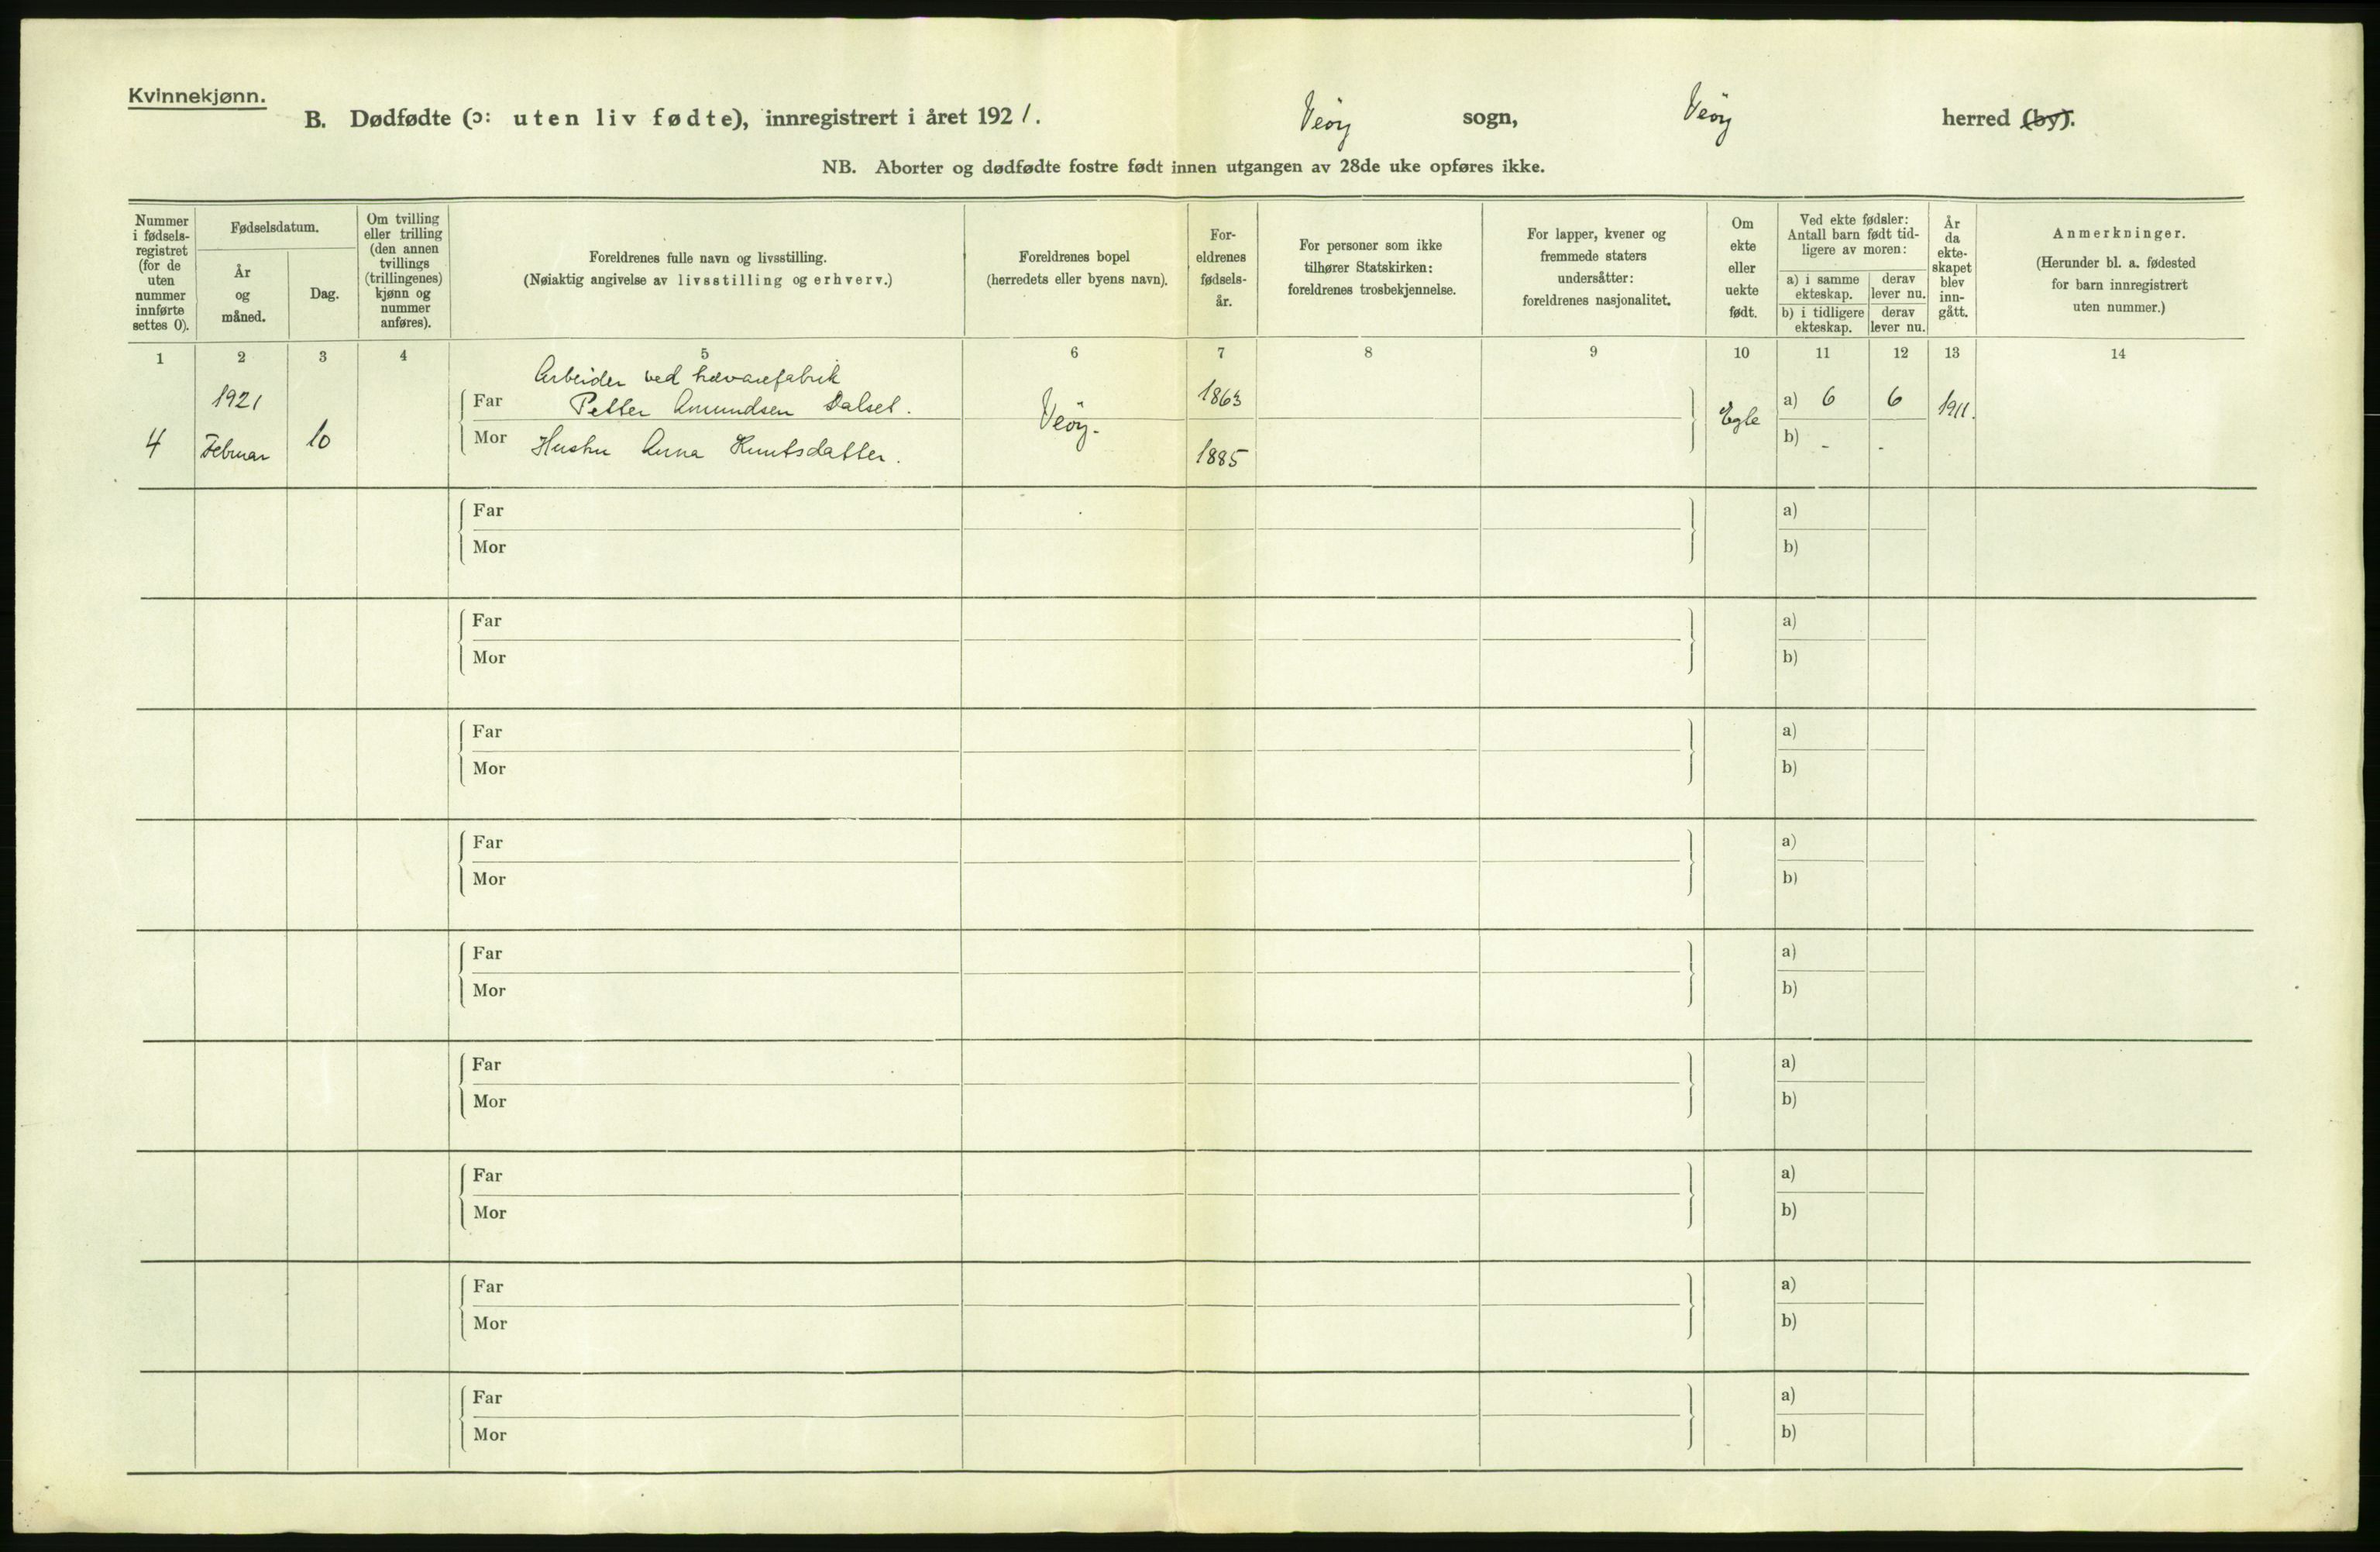 Kvinnekjønn.
B. Dødfødte (ɔ: uten liv fødte), innregistrert i året 1921. Veöy sogn, Veöy herred (by).
NB. Aborter og dødfødte fostre født innen utgangen av 28de uke opføres ikke.
Nummer i fødsels-registret (for de uten nummer innførte settes 0).
Fødselsdatum.
År og måned.
Dag.
Om tvilling eller trilling (den annen tvillings (trillingenes) kjønn og nummer anføres).
Foreldrenes fulle navn og livsstilling.
(Nøiaktig angivelse av livsstilling og erhverv.)
Foreldrenes bopel
(herredets eller byens navn).
For-eldrenes fødsels-år.
For personer som ikke
tilhører Statskirken:
foreldrenes trosbekjennelse.
For lapper, kvener og
fremmede staters
undersåtter:
foreldrenes nasjonalitet.
Om ekte eller uekte født.
Ved ekte fødsler:
Antall barn født tid-
ligere av moren:
a) i samme ekteskap.
derav lever nu.
b) i tidligere ekteskap.
derav lever nu.
År da ekte-skapet blev inn-gått.
Anmerkninger.
(Herunder bl. a. fødested
for barn innregistrert
uten nummer.)
1 2 3 4 5 6 7 8 9 10 11 12 13 14
Arbeider ved trevarefabrik
1921 Far Petter Amundsen Dalset. 1863 a) 6 6 1911.
4 Februar 10 Mor Hustru Anna Knutsdatter. Veöy. 1885 Egte b) - -
Far a)
Mor b)
Far a)
Mor b)
Far a)
Mor b)
Far a)
Mor b)
Far a)
Mor b)
Far a)
Mor b)
Far a)
Mor b)
Far a)
Mor b)
Far a)
Mor b)